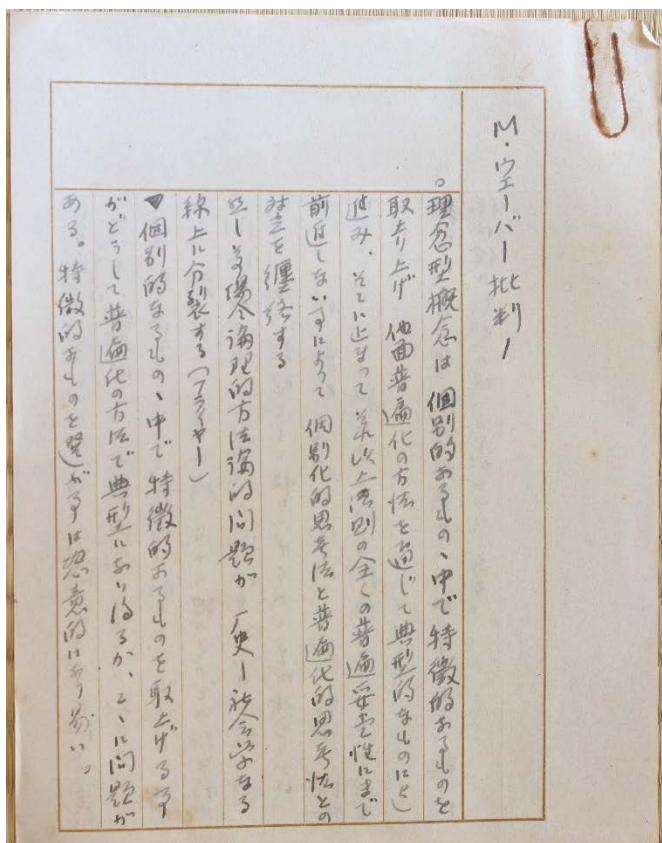 M・ウェーバー批判ノ
。理念型概念は 個別的なるもの、中で特徴的なるものを
取り上げ 他面普遍化の方法を通じて典型的なものにと
進み、そこに止まって それ以上法則の全くの普遍妥当性にまで
前進しない事によって 個別化的思考法と普遍化的思考法との
対立を纏絡する
然しその場合論理的方法論的問題が 歴史―社会学なる
線上に分裂する(フライヤー)
個別的なるもの、中で特徴的なるものを取上げる事
がどうして普遍化の方法で典型になり得るか、こゝに問題が
ある。特徴的なものを選ぶ事は恣意的になり易い。